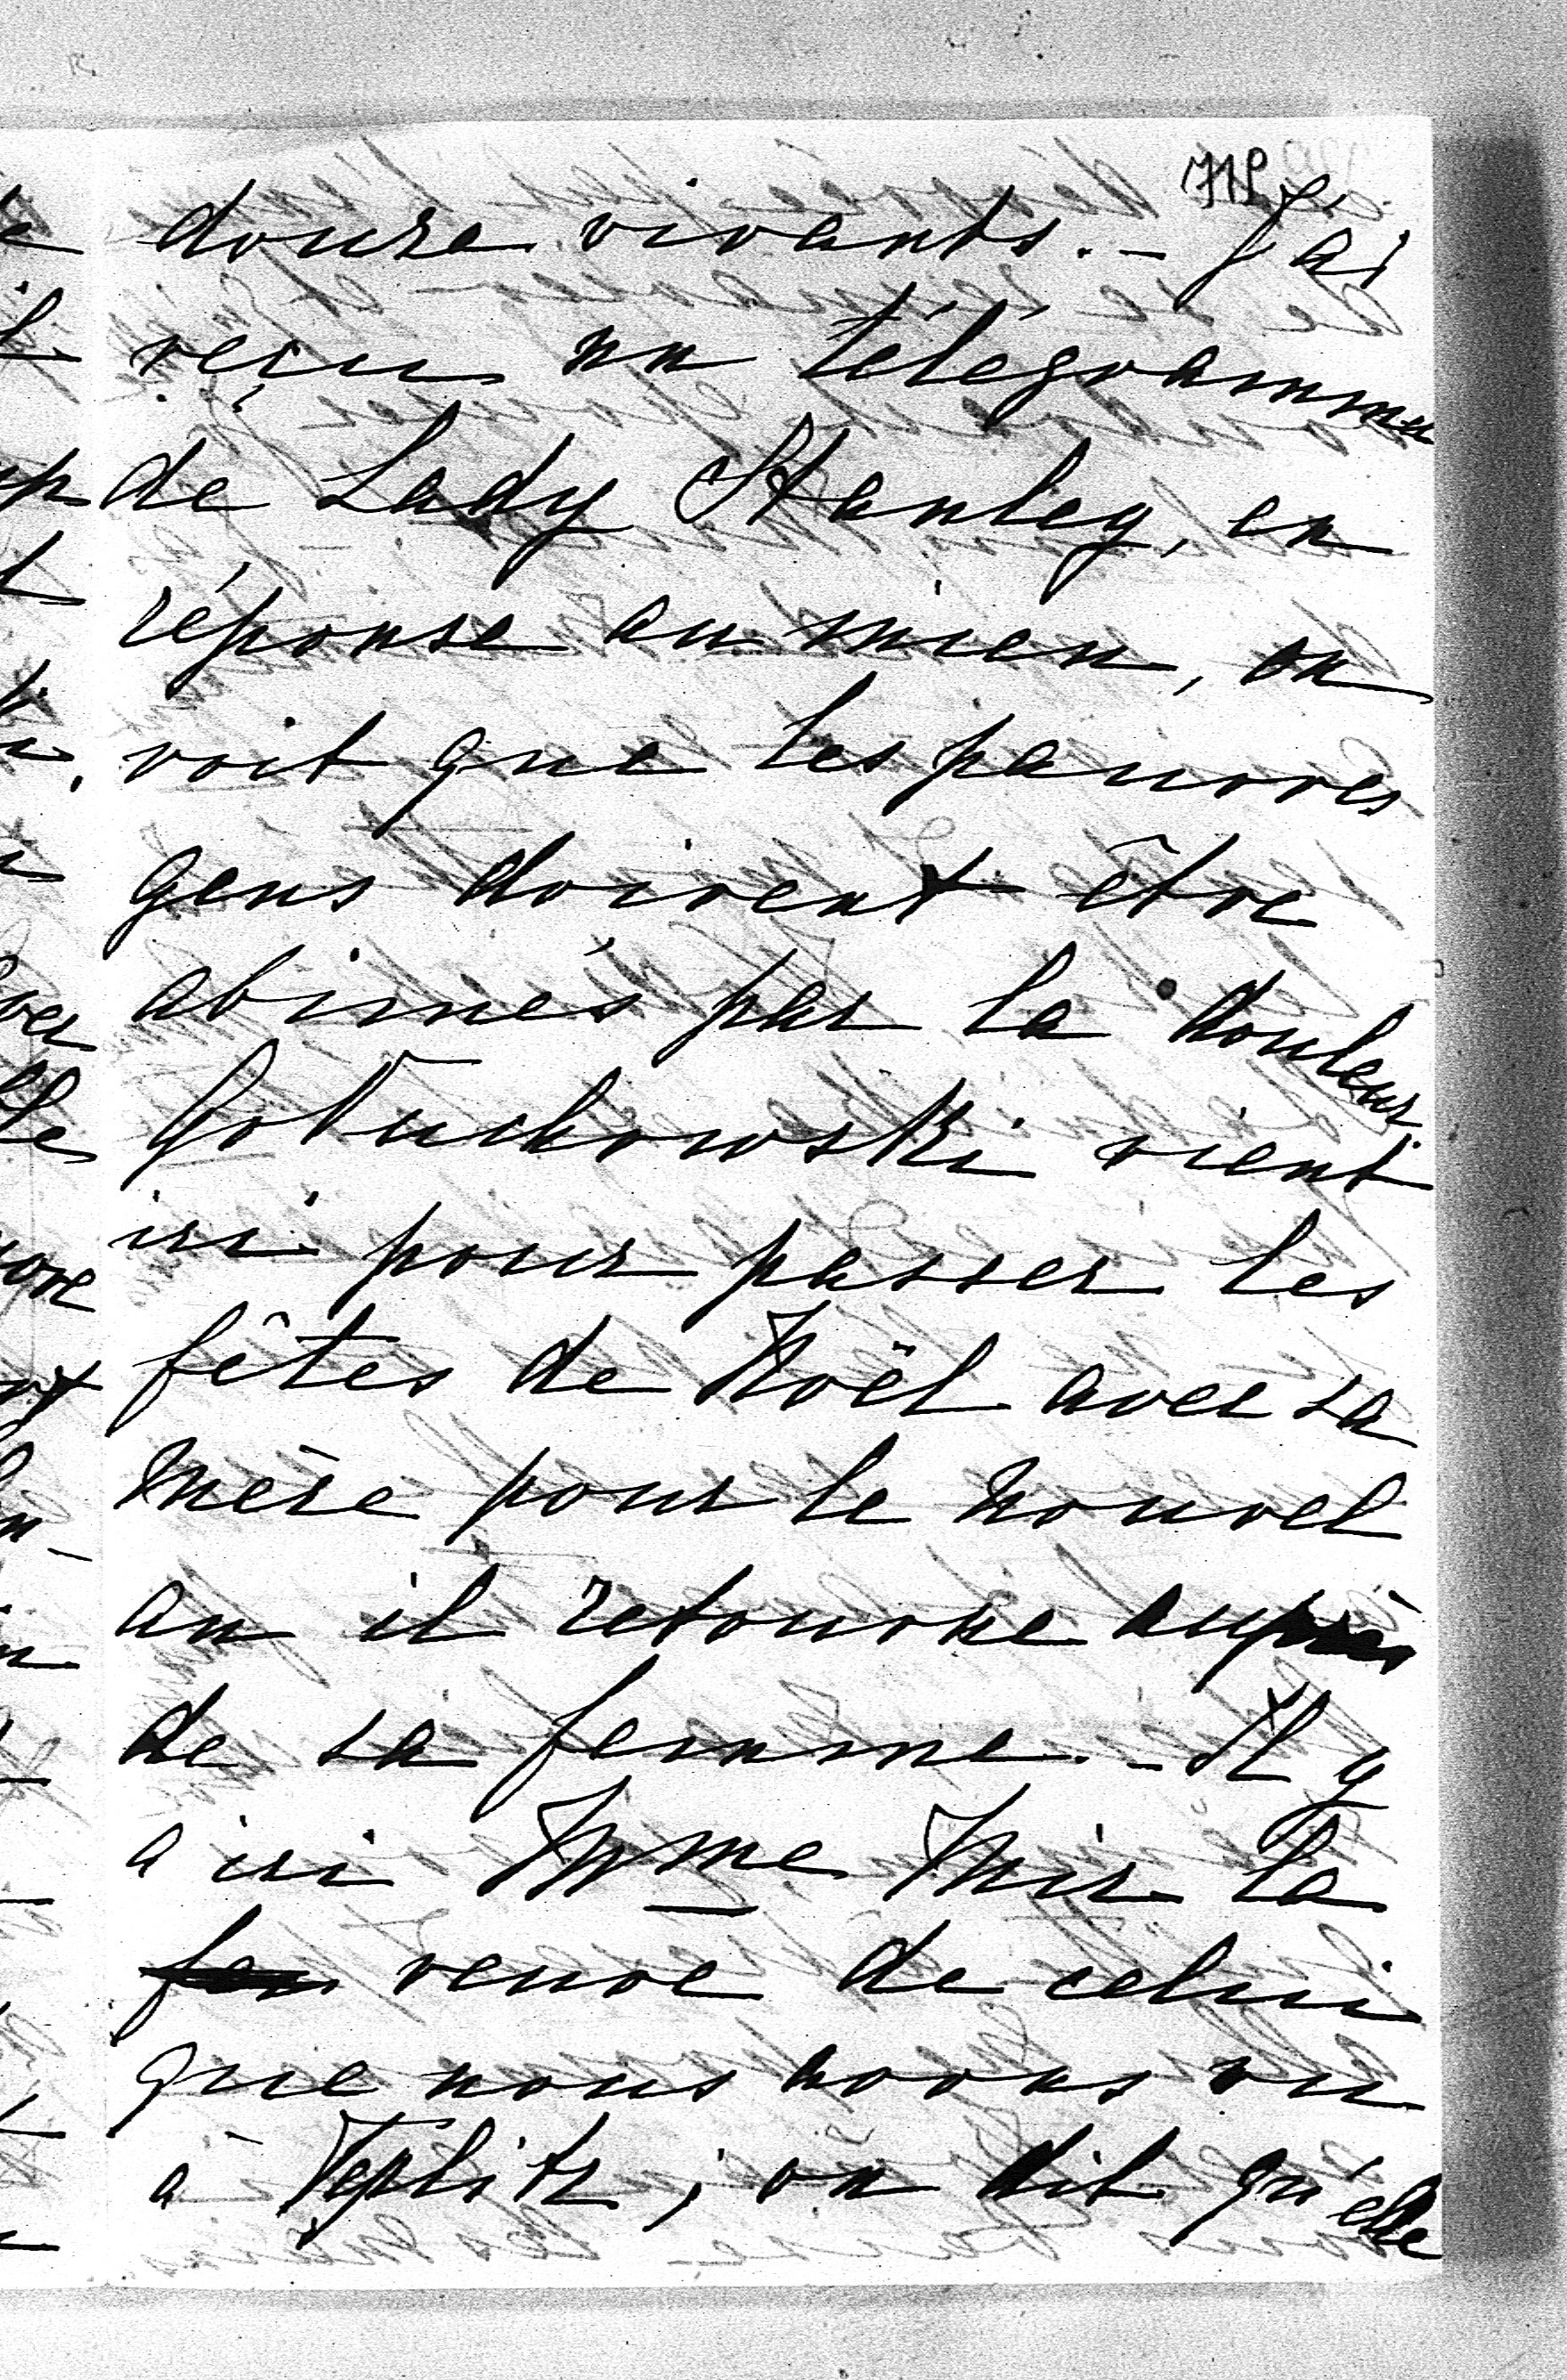 719
douze vivants. – J'ai
reçu un télégramme
de Lady Stanley, en
réponse au mien, on
voit que les pauvres
gens doivent être
abimés par la douleur.
Gołuchowski vient
ici pour passer les
fêtes de Noël avec sa
mère pour le nouvel
an il retourne auprès
de sa femme. – Il y
a ici Mme Mir la
veuve de celui
que nous avons vu
à Teplitz ; on dit qu'elle